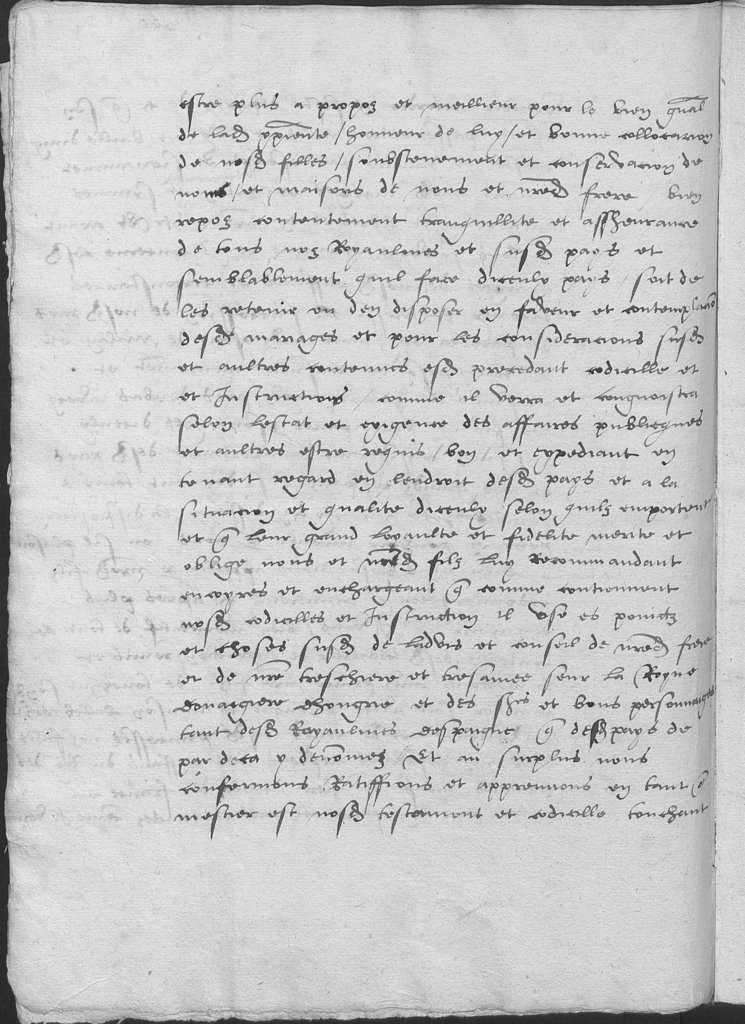 estre plus a propoz et meillieur pour le bien gnāl
de lad xpiente / honneur de luy / et bonne collocacion
de nosd filles / soubstenement et conservacion de
noms / et maisons de nous et nred frere / bien
repoz contentement tranquillite et assheurance
de tous noz Royaulmes et susd pays et
semblablement quil face diceulx pays / soit de
les retenir ou den disposer en faveur et contemplacion
desd mariages et pour les consideracions susd
et aultres contenues esd precedant codicille et
et Instructions / comme il verra et congnoistra
selon lestat et exigence des affaires publicques
et aultres estre requis / bon / et expediant en
tenant regard en lendroit desd pays et a la
situacion et qualite diceulx selon quilz emportent
et q leur grand leyaulte et fidelite merite et
oblige nous et nred filz luy Recommandant
encoyres et enchargeant q comme contiennent
nosd codicilles et Instruction il use es poinctz
et choses susd de ladvis et conseil de nred frere
et de nre treschiere et tresamee seur la Royne
douaigiere dhongrie et des Srs et bons personnaiges
tant desd Royaulmes despaigne q desd pays de
par deca y denommez Et au surplus nous
confermons Ratiffions et apprenuons en tant q
mestier est nosd testament et codicille touchant